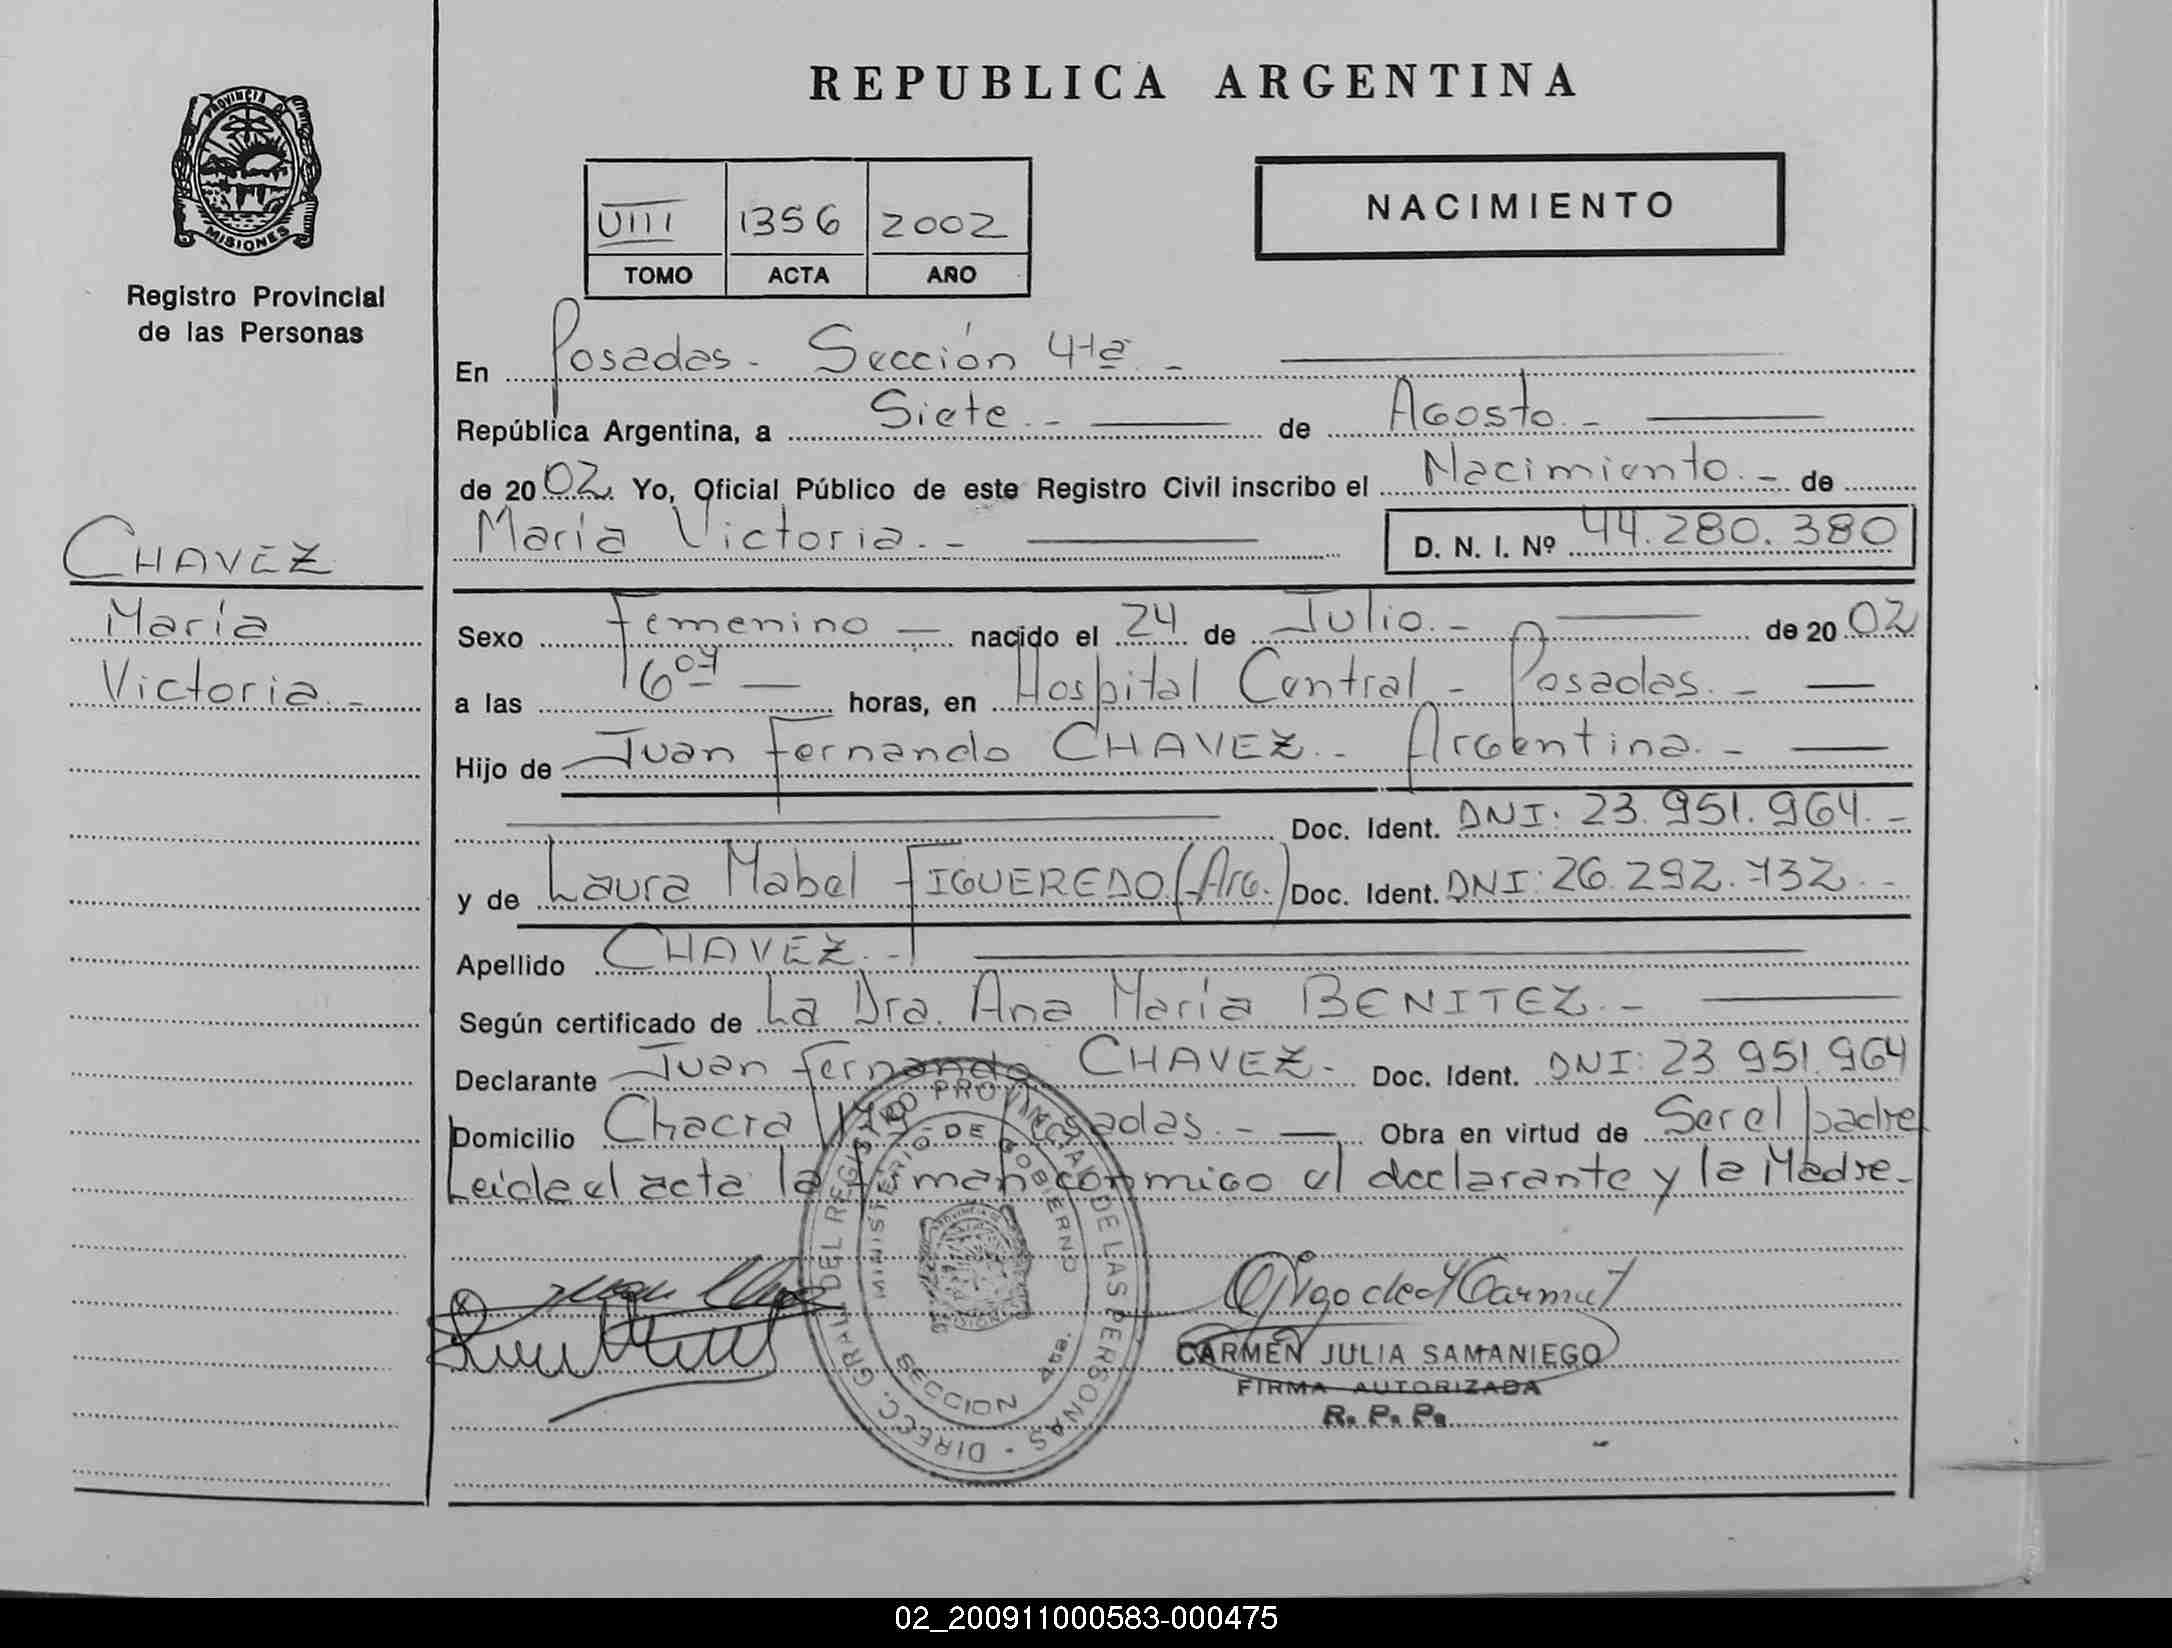 REPUBLICA ARGENTINA
PROVINCIA DE
MISIONES
Registro Provincial
de las Personas
VIII 1356 2002
TOMO ACTA AÑO
NACIMIENTO
En Posadas - Sección 4ta. -
República Argentina, a Siete. - de Agosto. -
de 2002. Yo, Oficial Público de este Registro Civil inscribo el Nacimiento. - de
María Victoria. - D. N. I. Nº 44.280.380
CHAVEZ
María
Victoria. -
Sexo Femenino - nacido el 24 de Julio. - de 2002
a las 16 07 - horas, en Hospital Central - Posadas. -
Hijo de Juan Fernando CHAVEZ. - Argentina. -
Doc. Ident. DNI: 23.951.964. -
y de Laura Mabel FIGUEREDO (Arg.) Doc. Ident. DNI: 26.292.732. -
Apellido CHAVEZ. -
Según certificado de La Dra. Ana María BENITEZ. -
Declarante Juan Fernando CHAVEZ. - Doc. Ident. DNI: 23.951.964
Domicilio Chacra Posadas. - Obra en virtud de Ser el padre
Leida el acta la firman conmigo el declarante y la Madre. -
DIRECC. GRAL. DEL REGISTRO PROVINCIAL DE LAS PERSONAS -
MINISTERIO DE GOBIERNO
SECCION 4ta.
CARMEN JULIA SAMANIEGO
FIRMA AUTORIZADA
R. P. P.
02_200911000583-000475